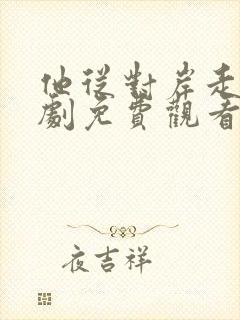 他從對岸走
劇免費觀看
夜吉祥